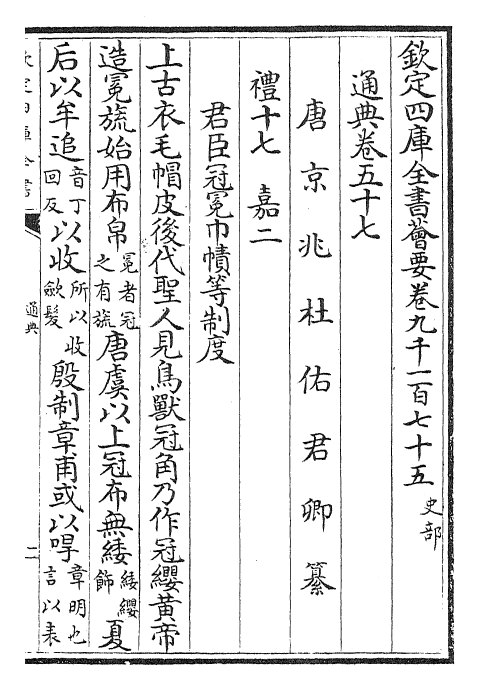 欽定四庫全書薈要卷九千一百七十五 史部
通典卷五十七
唐京兆杜佑君卿纂
禮十七 嘉二
君臣冠冕巾幘等制度
上古衣毛帽皮後代聖人見鳥獸冠角乃作冠纓黃帝
造冕旒始用布帛冕者冠之有旒唐虞以上冠布無緌緌纓飾夏
后以牟追音丁回反以收所以收斂髮殷制章甫或以冔章明也言以表
通典
二